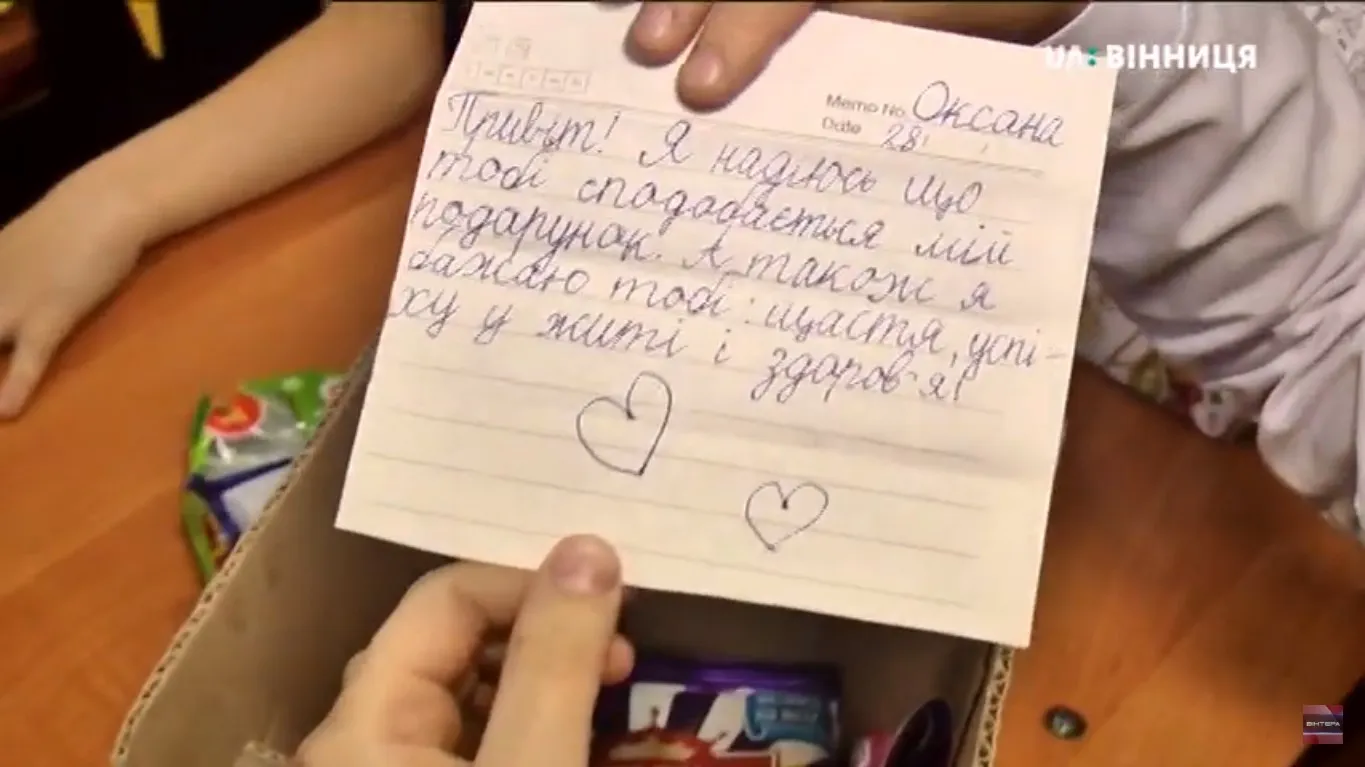 UA: ВІННИЦЯ
Memo No. Оксана
Date 28
Привіт! Я надіюсь що
тобі сподобається мій
подарунок. А також я
бажаю тобі: щастя, успі-
ху у житі і здоров'я!
ВІНТЕРА